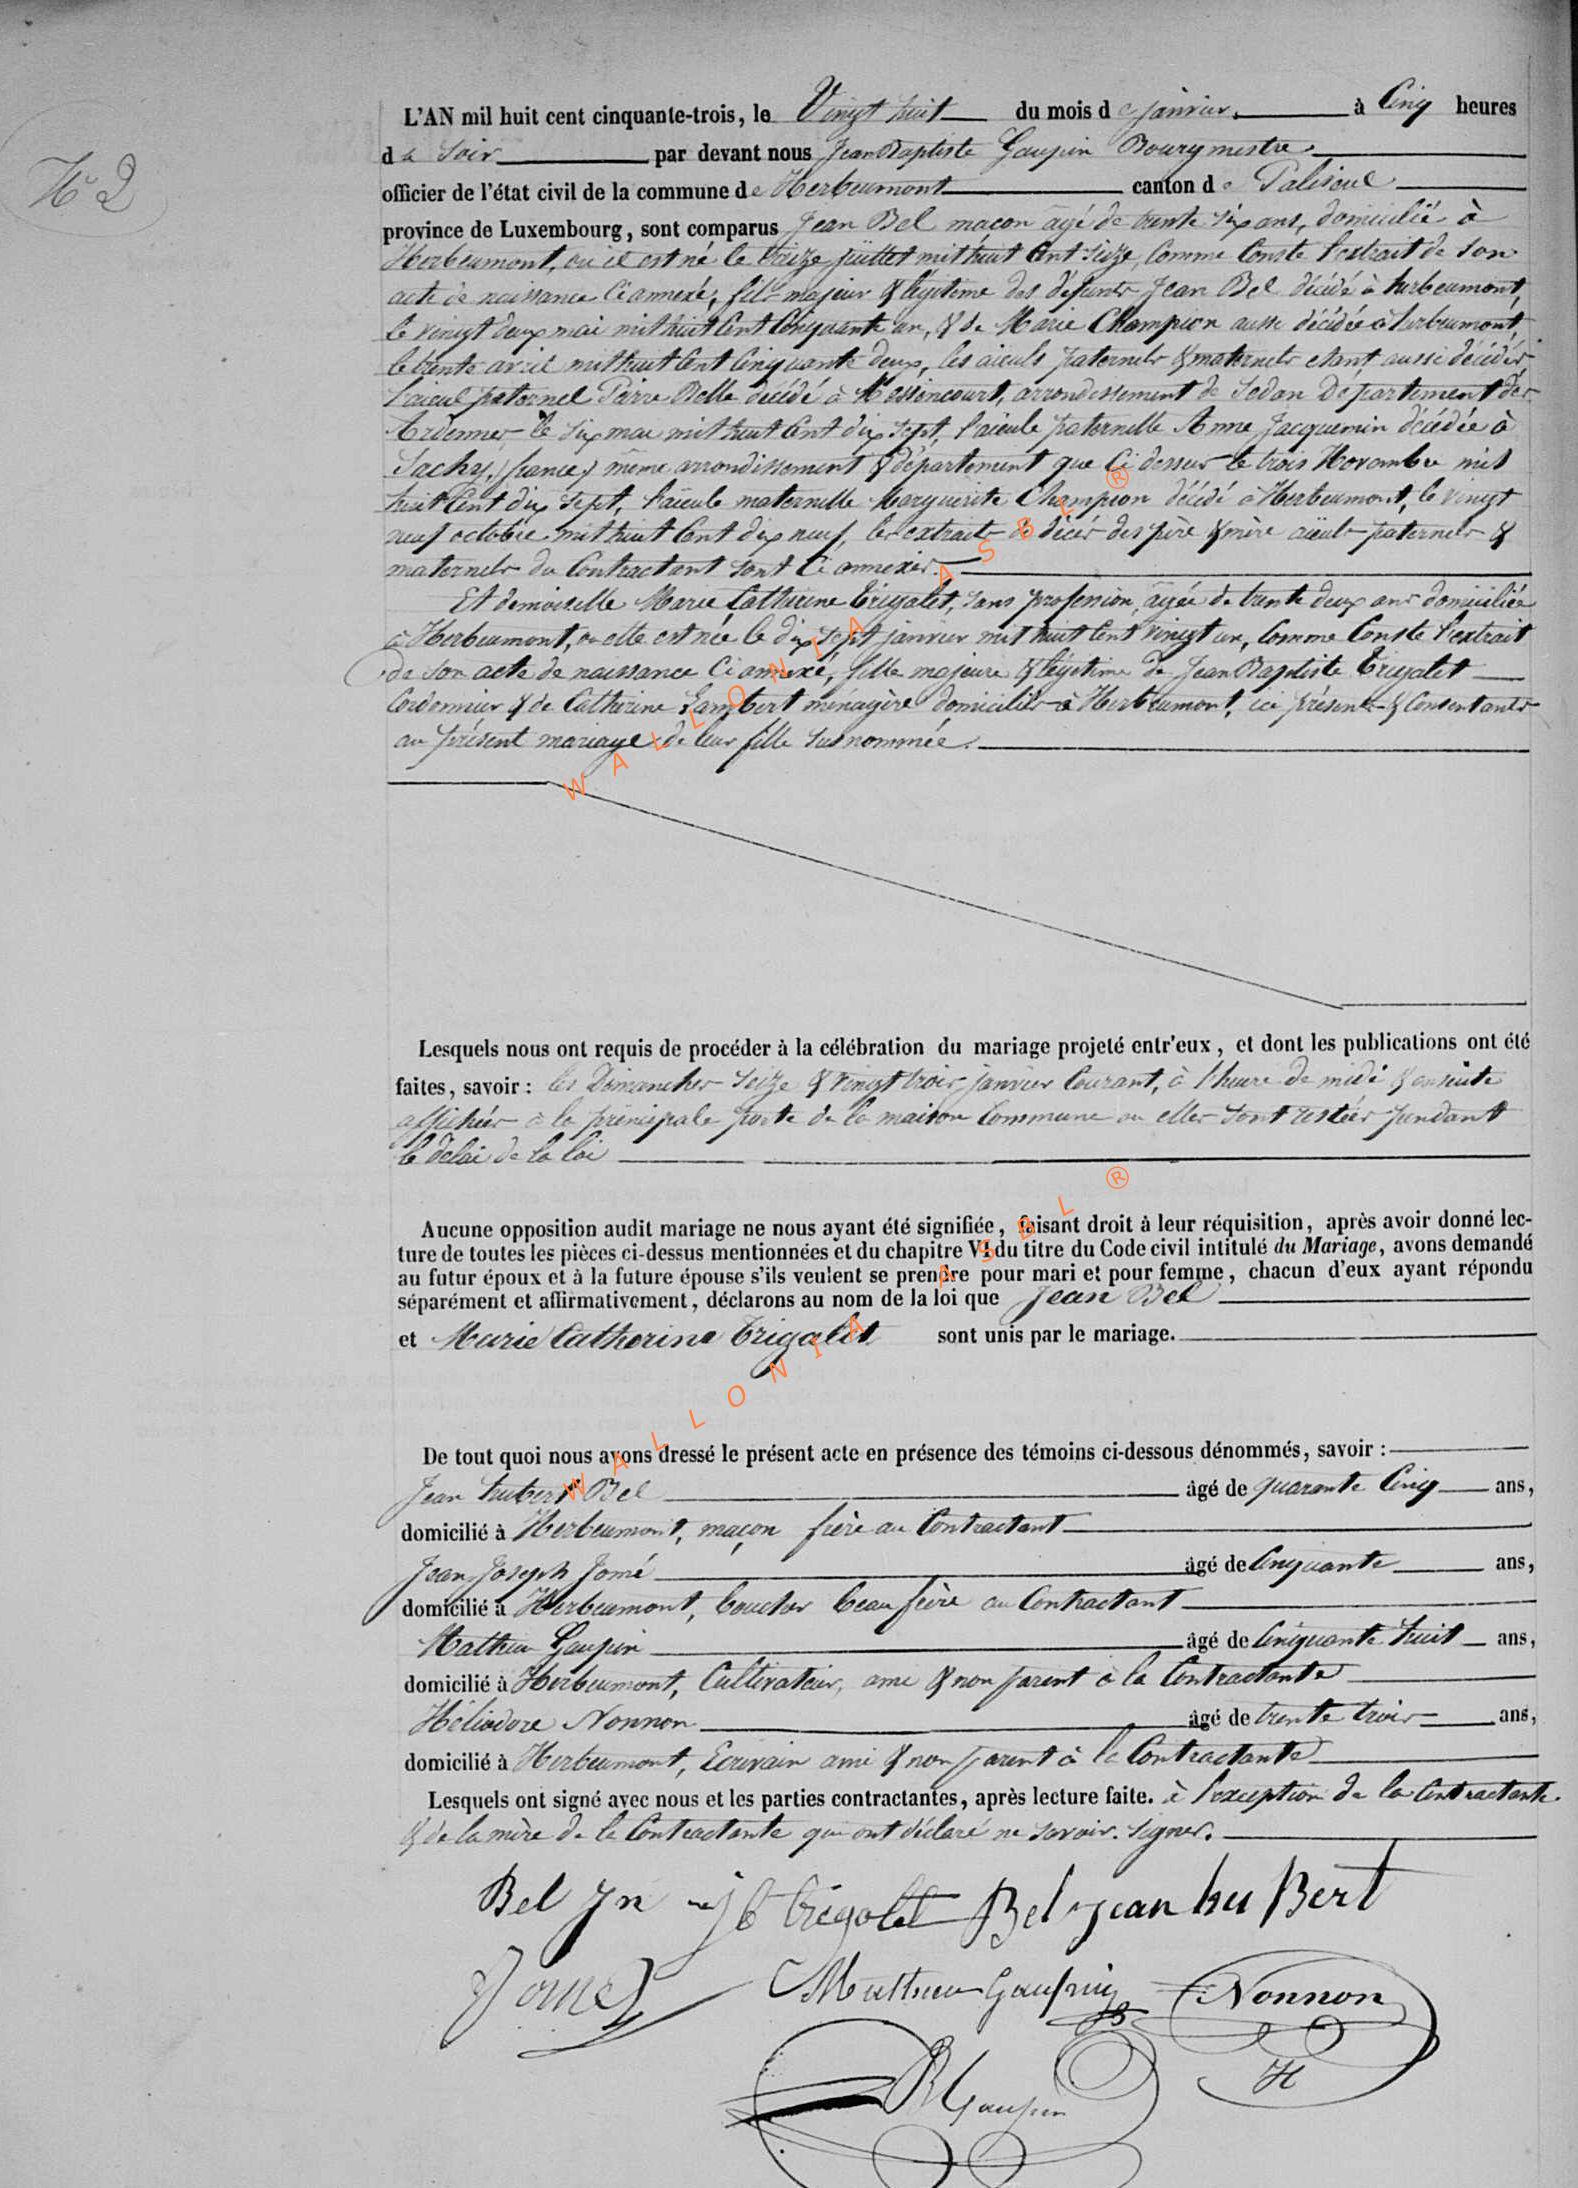 N° 2
L'AN mil huit cent cinquante-trois, le Vingt huit du mois de janvier, à Cinq heures
du soir par devant nous Jean Baptiste Gaupin Bourgmestre
officier de l'état civil de la commune de Herbeumont canton de Paliseul
province de Luxembourg, sont comparus Jean Bel maçon âgé de trente six ans, domicilié à
Herbeumont, ou il est né le treize juillet mil huit Cent Seize, Comme Conste l'extrait de son
acte de naissance Ci annexé, fils majeur & légitime des défunts Jean Bel décédé à herbeumont,
le vingt deux mai mil huit Cent Cinquante un, & de Marie Champion aussi décédée à herbeumont,
le trente avril mil huit Cent Cinquante deux, les aïeuls paternels & maternels etant aussi décédés,
l'aïeul paternel Pierre Belle décédé à Messincourt, arrondissement de Sedan Département des
Ardennes le six mai mil huit Cent dix sept, l'aïeule paternelle Anne Jacquemin décédée à
Sachy, (france) même arrondissement & département que Ci dessus le trois Novembre mil
huit Cent dix sept, l'aïeule maternelle Marguerite Champion décédé à Herbeumont, le vingt
neuf octobre mil huit Cent dix neuf, les extraits de décès des père & mère aïeuls paternels &
maternels du Contractant sont Ci annexés.
Et demoiselle Marie Catherine Trigalet, sans profession, âgée de trente deux ans domiciliée
à Herbeumont, ou elle est née le dix sept janvier mil huit Cent vingt un, Comme Conste l'extrait
de son acte de naissance Ci annexé, fille majeure & légitime de Jean Baptiste Trigalet
Cordonnier & de Catherine Lambert ménagère domiciliés à Herbeumont, ici présents & Consentants
au présent mariage de leur fille susnommée.
Lesquels nous ont requis de procéder à la célébration du mariage projeté entr'eux, et dont les publications ont été
faites, savoir : les Dimanches Seize & vingt trois janvier Courant, à l'heure de midi & ensuite
affichées à la principale porte de la maison Commune ou elles sont restées pendant
le délai de la loi
Aucune opposition audit mariage ne nous ayant été signifiée, faisant droit à leur réquisition, après avoir donné lec-
ture de toutes les pièces ci-dessus mentionnées et du chapitre VI du titre du Code civil intitulé du Mariage, avons demandé
au futur époux et à la future épouse s'ils veulent se prendre pour mari et pour femme, chacun d'eux ayant répondu
séparément et affirmativement, déclarons au nom de la loi que Jean Bel
et Marie Catherine Trigalet sont unis par le mariage.
De tout quoi nous avons dressé le présent acte en présence des témoins ci-dessous dénommés, savoir :
Jean hubert Bel âgé de quarante Cinq ans,
domicilié à Herbeumont, maçon frère au Contractant
Jean Joseph Jomé âgé de Cinquante ans,
domicilié à Herbeumont, boucher beau frère au Contractant
Mathieu Gaupin âgé de Cinquante huit ans,
domicilié à Herbeumont, Cultivateur, ami & non parent à la Contractante
Héliodore Nonnon âgé de trente trois ans,
domicilié à Herbeumont, Ecrivain ami & non parent à la Contractante
Lesquels ont signé avec nous et les parties contractantes, après lecture faite. à l'exception de la Contractante
& de la mère de la Contractante qui ont déclaré ne savoir signer.
Bel Jn jb trigalet Bel jean huBert
Jomé Mathieu Gaupin Nonnon
H
Gaupin
WALLONIA ASBL ®
WALLONIA ASBL ®